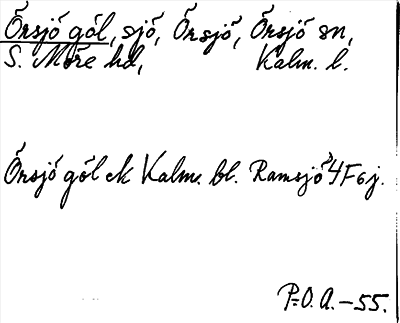 Örsjö göl, sjö, Örsjö, Örsjö sn,
S. Möre hd, Kalm. l.
Örsjö göl ek Kalm. bl. Ramsjö 4F6j.
P.O.A. - 55.